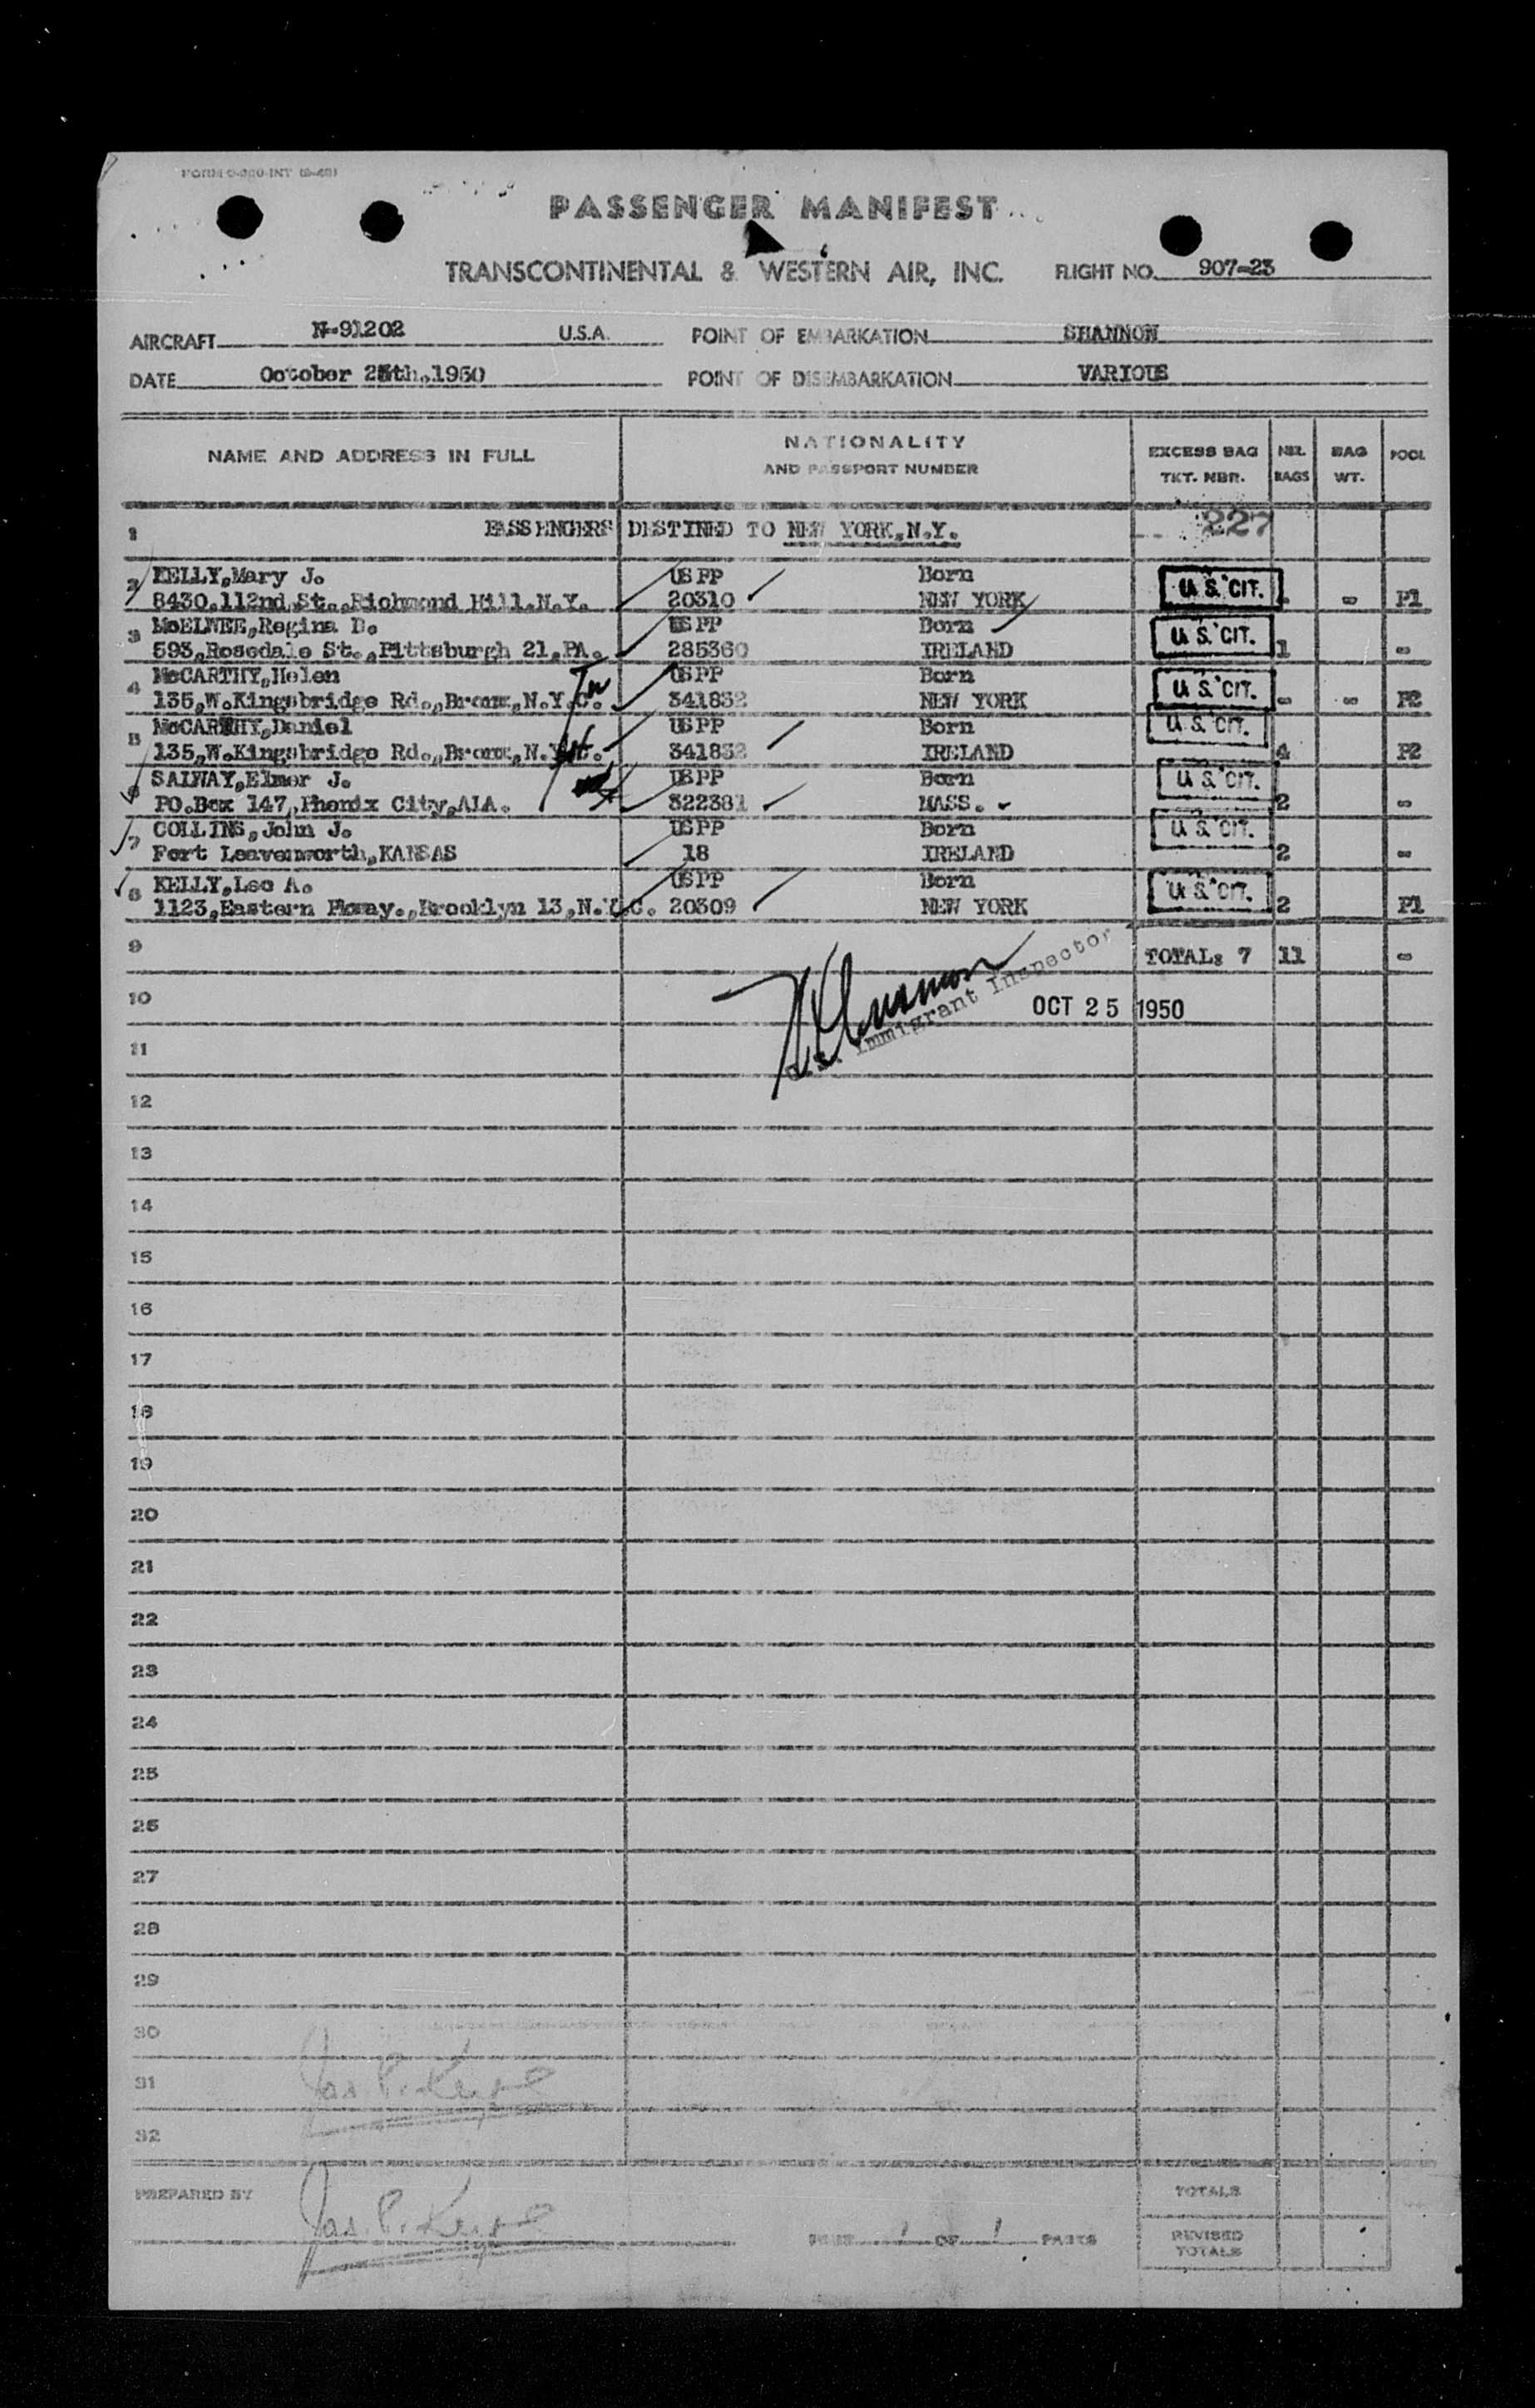 PASSENGER MANIFEST
TRANSCONTINENTAL & WESTERN AIR, INC. FLIGHT NO. 907-23
AIRCRAFT N-91202 U.S.A. POINT OF EMBARKATION SHANNON
DATE October 25th.,1950 POINT OF DISEMBARKATION VARIOUS
NAME AND ADDRESS IN FULL NATIONALITY AND PASSPORT NUMBER EXCESS BAG TKT. NBR. NBR. BAGS BAG WT. POOL
1 PASSENGERS DESTINED TO NEW YORK,N.Y. 227
2 KELLY,Mary J. USPP Born U.S. CIT.
8430,112nd St.,Richmond Hill.N.Y. 20310 NEW YORK - - P1
3 McELWEE,Regina D. USPP Born U.S. CIT.
593,Rosedale St.,Pittsburgh 21,PA. 285360 IRELAND 1 -
4 McCARTHY,Helen USPP Born U.S. CIT.
135,W.Kingsbridge Rd.,Bronx,N.Y.C. 341832 NEW YORK - - P2
5 McCARTHY,Daniel USPP Born U.S. CIT.
135,W.Kingsbridge Rd.,Bronx,N.Y.C. 341832 IRELAND 4 P2
6 SALWAY,Elmer J. USPP Born U.S. CIT.
PO.Box 147,Phenix City,ALA. 322381 MASS. 2 -
7 COLLINS,John J. USPP Born U.S. CIT.
Fort Leavenworth,KANSAS 18 IRELAND 2 -
8 KELLY,Leo A. USPP Born U.S. CIT.
1123,Eastern Pkway.,Brooklyn 13,N.Y.C. 20309 NEW YORK 2 P1
9 TOTAL: 7 11 -
U.S. Immigrant Inspector
10 OCT 25 1950
11
12
13
14
15
16
17
18
19
20
21
22
23
24
25
26
27
28
29
30
31
32
PREPARED BY TOTALS
PART 1 OF 1 PARTS REVISED TOTALS